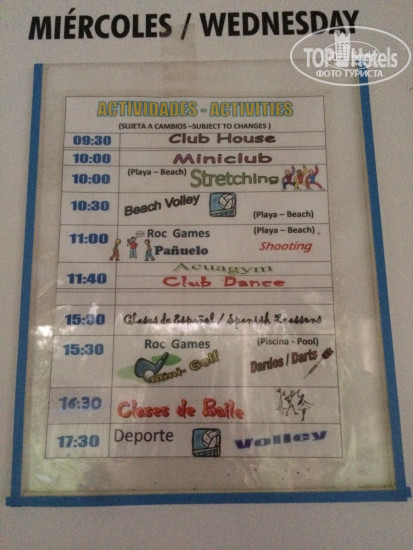 MIÉRCOLES / WEDNESDAY
TOPHotels
ФОТО ТУРИСТА
ACTIVIDADES - ACTIVITIES
(SUJETA A CAMBIOS –SUBJECT TO CHANGES )
09:30 Club House
10:00 Miniclub
10:00 (Playa – Beach) Stretching
10:30 Beach Volley (Playa – Beach)
11:00 Roc Games (Playa – Beach)
Pañuelo Shooting
Acuagym
11:40 Club Dance
15:00 Clases de Español / Spanish Lessons
15:30 Roc Games (Piscina - Pool)
Mini- Golf Dardos / Darts
16:30 Clases de Baile
17:30 Deporte Volley